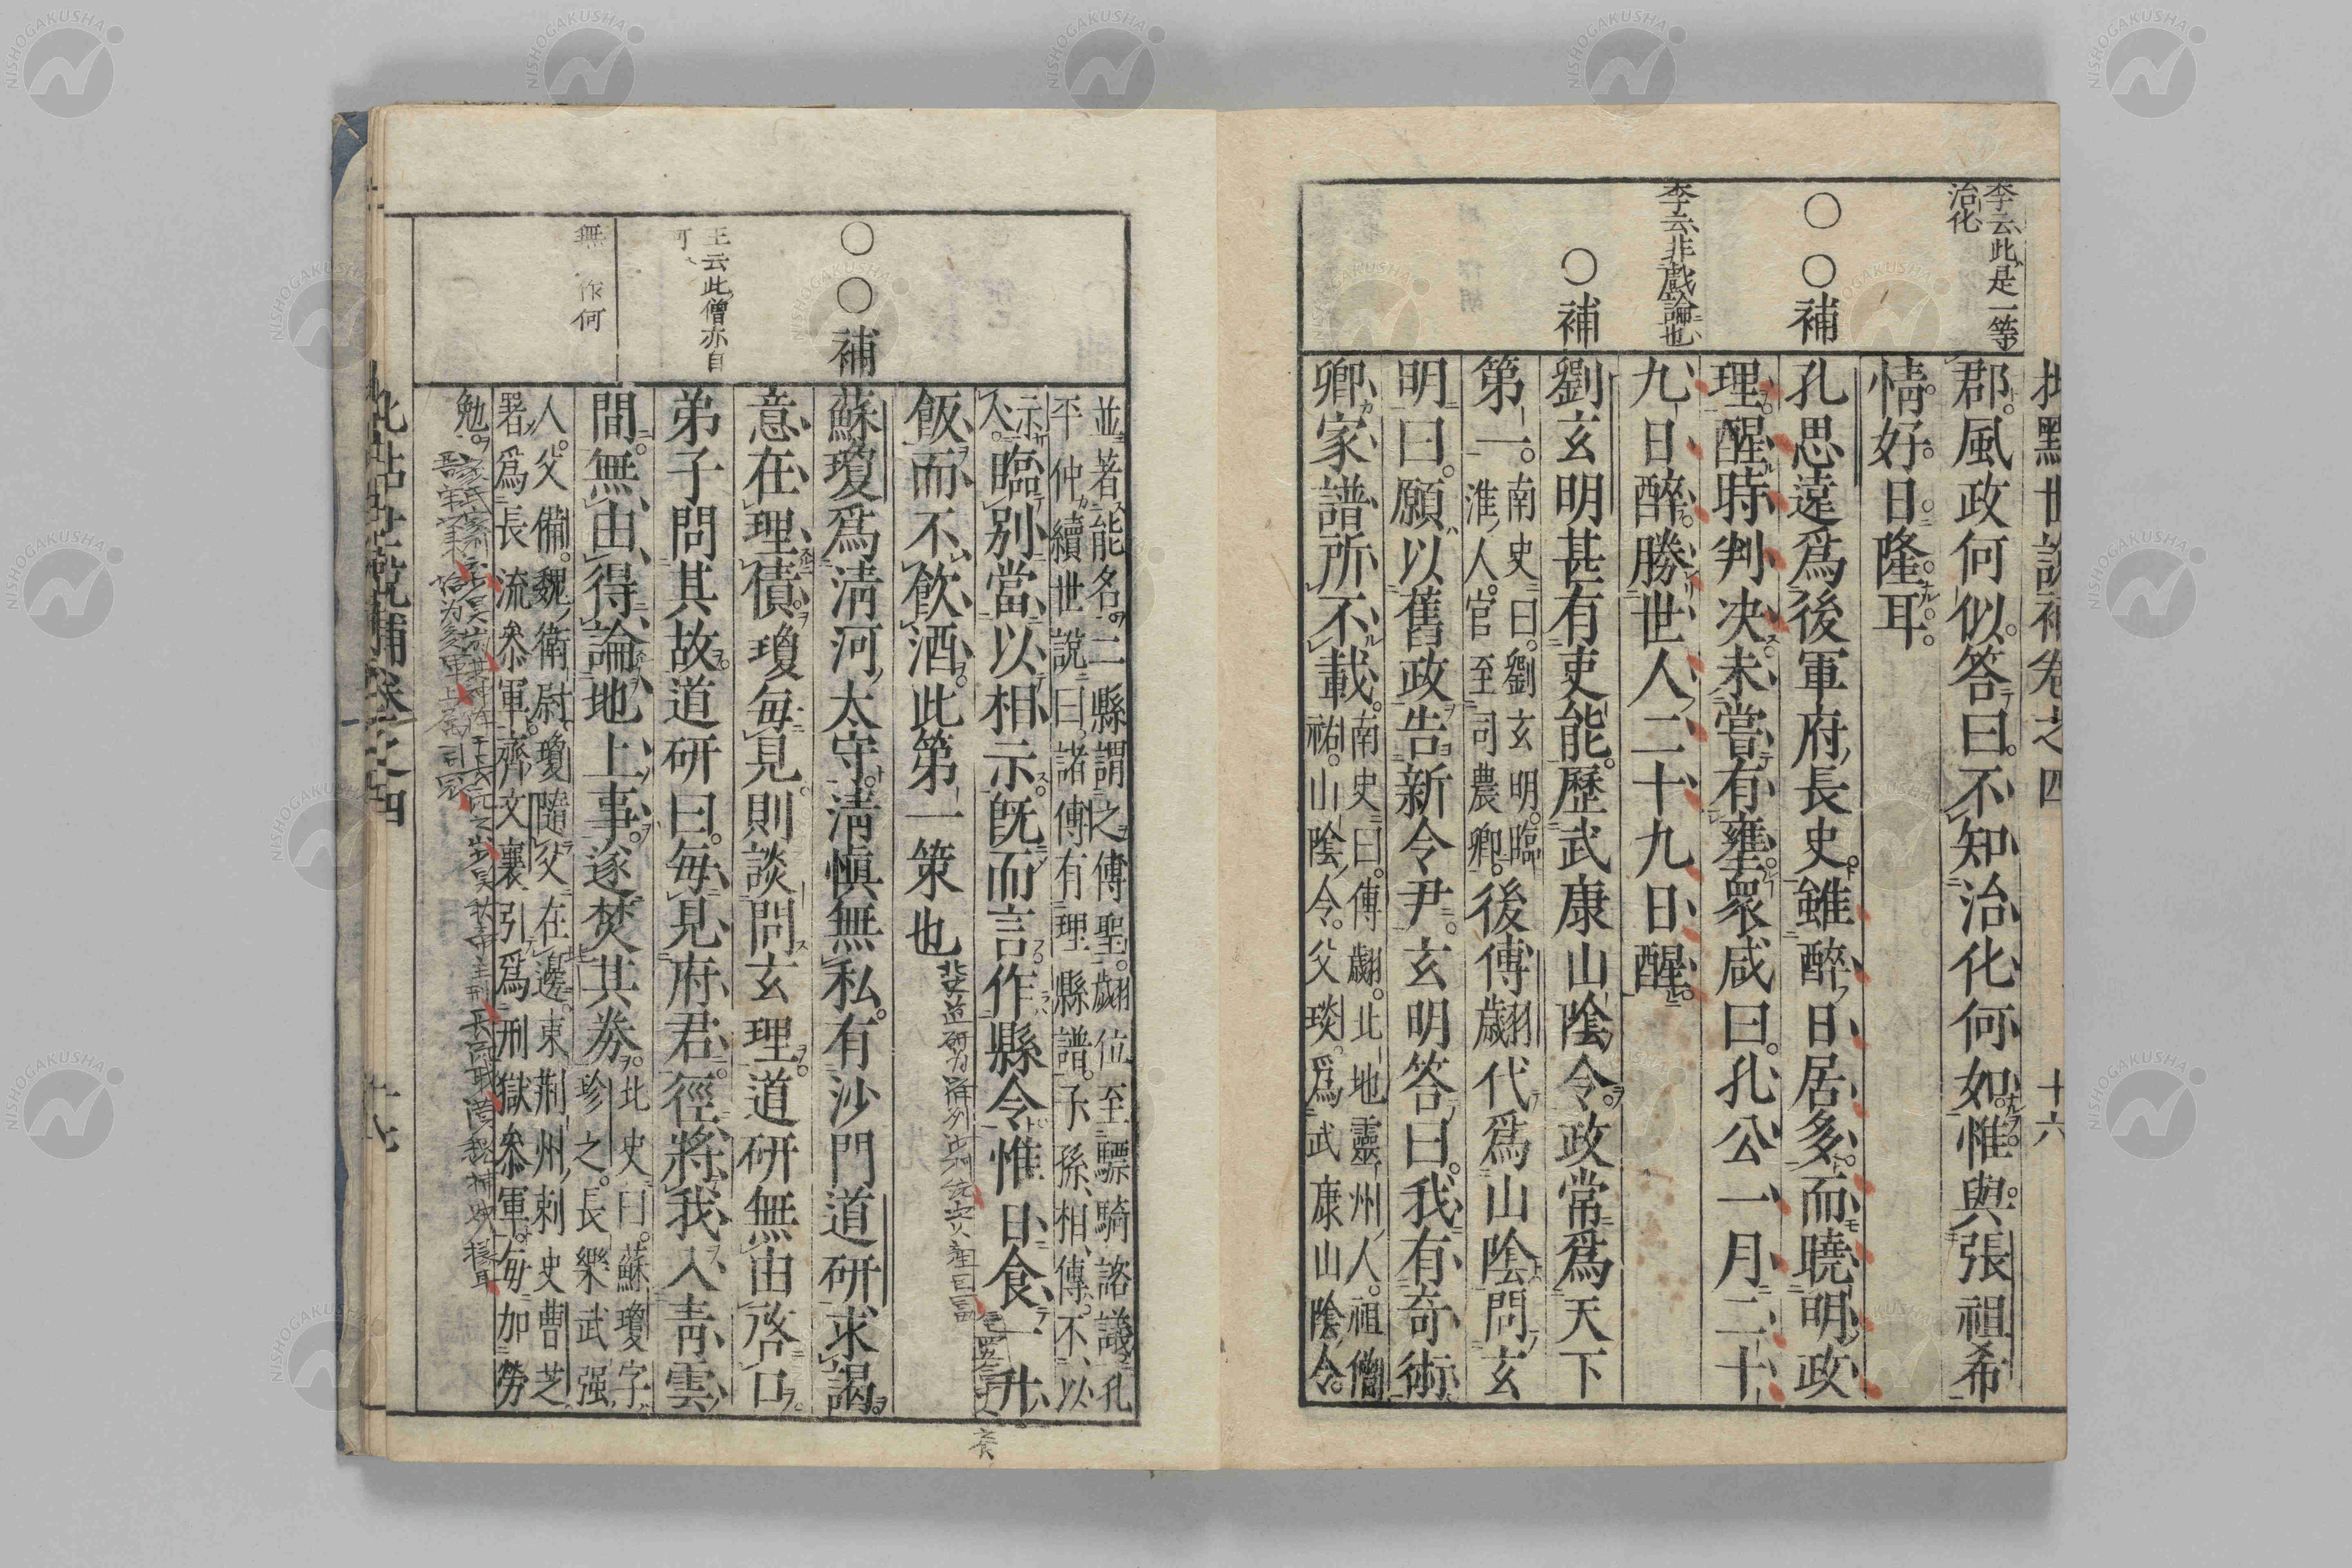 批點世說補卷之四 十六
李云此是一等
治化
郡風政何似答曰不知治化何如惟與張祖希
情好日隆耳
○○補
孔思遠爲後軍府長史雖醉日居多而曉明政
理醒時判决未嘗有壅衆咸曰孔公一月二十
九日醉勝世人二十九日醒
李云非戲論也
○補
劉玄明甚有吏能歷武康山陰令政常爲天下
第一南史曰劉玄明臨
淮人官至司農卿後傅翽代爲山陰問玄
明曰願以舊政告新令尹玄明答曰我有奇術
卿家譜所不載南史曰傅翽北地靈州人祖僧
祐山陰令父琰爲武康山陰令
並著能名二縣謂之傅聖翽位至驃騎諮議孔
平仲續世說曰諸傅有理縣譜子孫相傳不以
示人臨別當以相示既而言作縣令惟日食一升
飯而不飲酒此第一策也
○○補
蘇瓊爲淸河太守淸愼無私有沙門道研求謁
意在理債瓊每見則談問玄理道研無由啓口
王云此僧亦自
可
弟子問其故道研曰每見府君徑將我入靑雲
間無由得論地上事遂焚其券北史曰蘇瓊字
珍之長樂武强
無 作何
人父備魏衛尉瓊隨父在邊東荆州刺史曹芝
署爲長流叅軍齊文襄引爲刑獄叅軍每加勞
勉
批點世說補卷之四